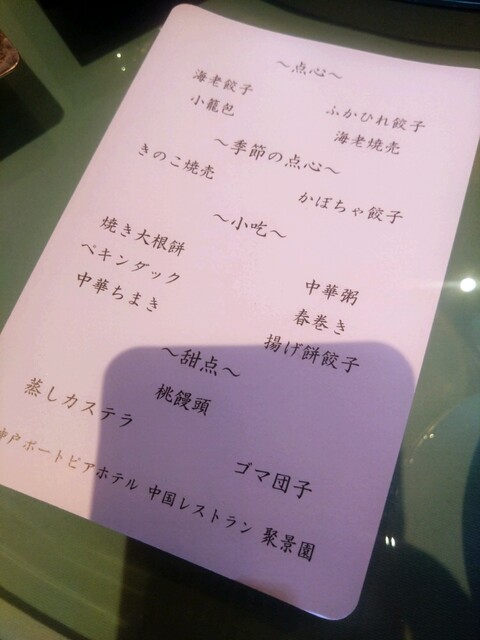 ～点心～
海老餃子 ふかひれ餃子
小籠包 海老焼売
～季節の点心～
きのこ焼売 かぼちゃ餃子
～小吃～
焼き大根餅 中華粥
ペキンダック 春巻き
中華ちまき 揚げ餅餃子
～甜点～
桃饅頭
蒸しカステラ ゴマ団子
神戸ポートピアホテル 中国レストラン 聚景園